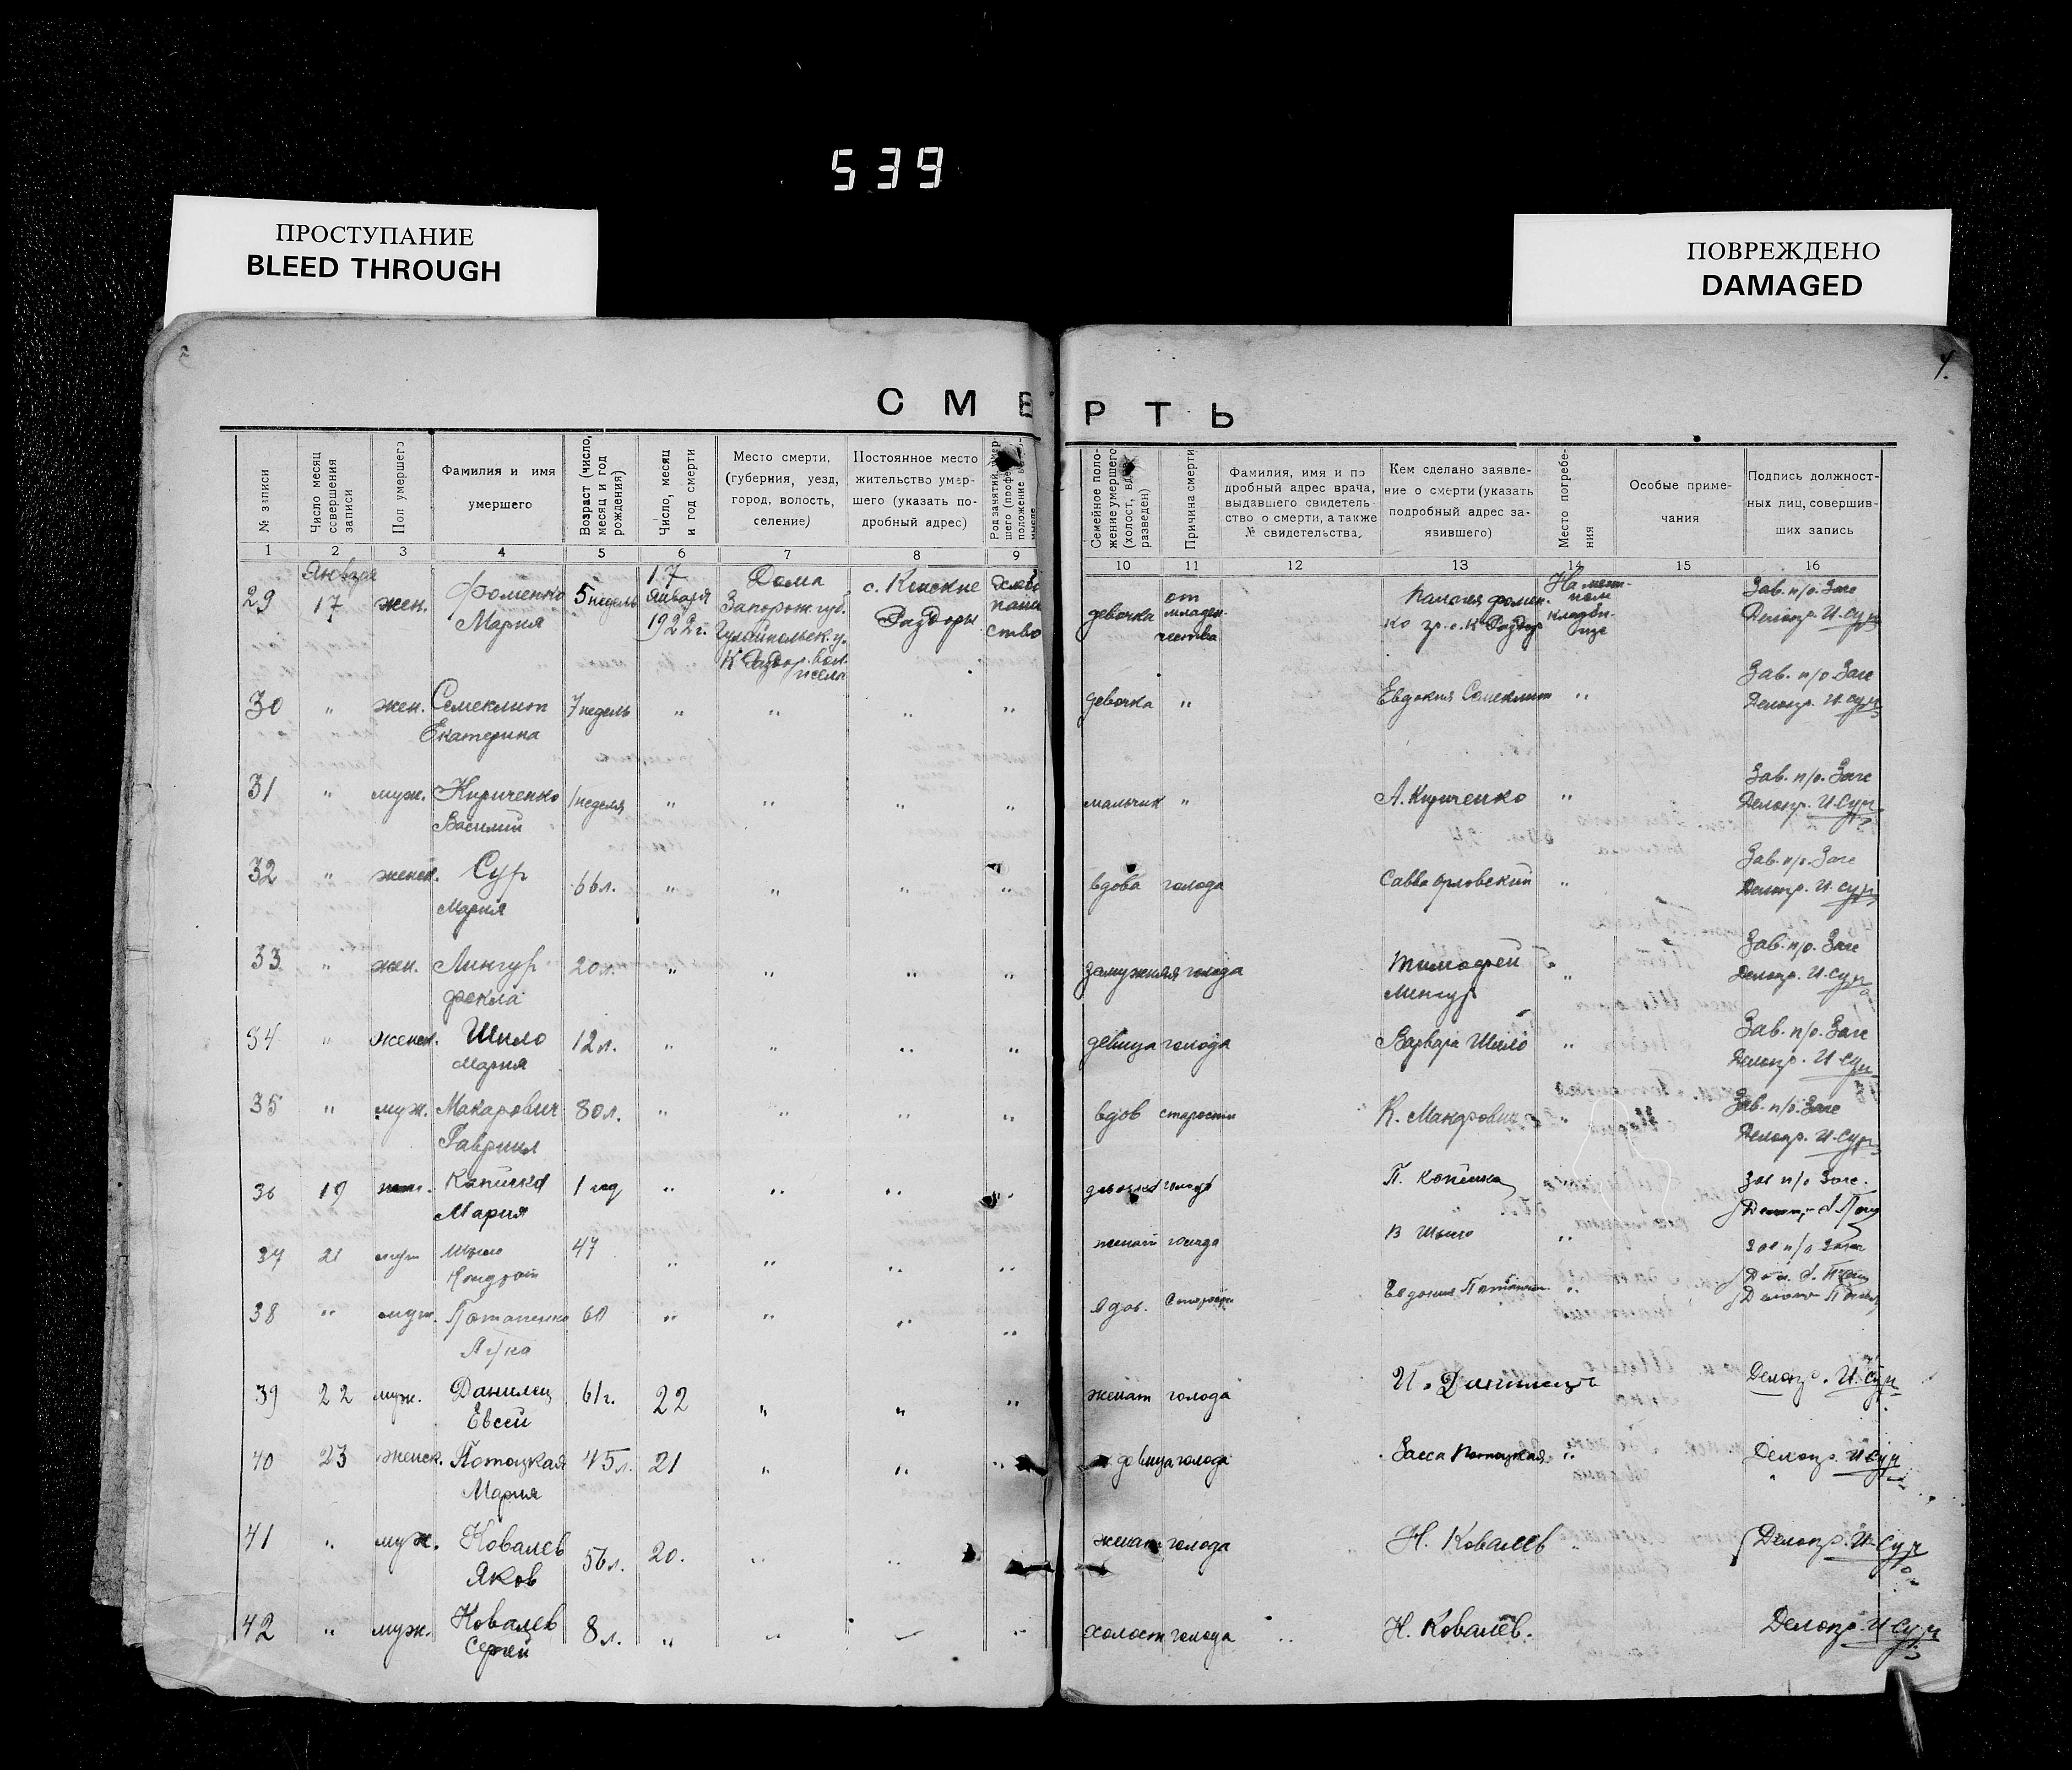 539
ПРОСТУПАНИЕ
BLEED THROUGH
ПОВРЕЖДЕНО
DAMAGED
СМЕРТЬ
№ записи
Число месяц совершения записи
Пол умершего
Фамилия и имя умершего
Возраст (число, месяц и год рождения)
Число, месяц и год смерти
Место смерти, (губерния, уезд, город, волость, селение)
Постоянное место жительство умершего (указать подробный адрес)
Род занятий
Семейное положение умершего (холост, разведен)
Причина смерти
Фамилия, имя и подробный адрес врача, выдавшего свидетельство о смерти, а также № свидетельства,
Кем сделано заявление о смерти (указать подробный адрес заявившего)
Место погребения
Особые примечания
Подпись должностных лиц, совершивших запись
1 2 3 4 5 6 7 8 9 10 11 12 13 14 15 16
29 Января 17 жен. Фоменко Мария 5 недель 17 января 1922г. Дома Запорож. губ. К Раздор. с. Конские Раздоры девочка от младенчества На кладбище Зав. п/о. Загс Делопр. И. Сур
30 " жен. Семеклит Екатерина 7 недель " " " " девочка " Евдокия Семеклит " Зав. п/о. Загс Делопр. И. Сур
31 " муж. Кириченко Василий 1 неделя " " " " мальчик " А. Кириченко " Зав. п/о. Загс Делопр. И. Сур
32 " женск. Сур Мария 66 л. " " " " вдова голода Савва Орловский " Зав. п/о. Загс Делопр. И. Сур
33 " жен. Лингур Фекла 20 л. " " " " замужняя голода Тимофей " Зав. п/о. Загс Делопр. И. Сур
34 " женск. Шило Мария 12 л. " " " " девица голода Варвара Шило " Зав. п/о. Загс Делопр. И. Сур
35 " муж. Макарович Гавриил 80 л. " " " " вдов старости К. Макарович " Зав. п/о. Загс Делопр. И. Сур
36 19 Мария 1 год " " " " голода П. " Зав п/о Загс.
37 21 муж Шило Кондрат 47 " " " " женат голода В Шило " Зав п/о Загс
38 " муж. Потапенко Лука 60 " " " " вдов. Старости Евдокия "
39 22 муж. Данилец Евсей 61 г. 22 " " " женат голода И. Делопр. И. Сур
40 23 женск. Потоцкая Мария 45 л. 21 " " " девица голода Потоцкая " Делопр. И Сур
41 " муж. Ковалев Яков 56 л. 20. " " женат голода Н. Ковалев " Делопр. И. Сур
42 " муж. Ковалев Сергей 8 л. " " " " холост голода Н. Ковалев. Делопр. И Сур